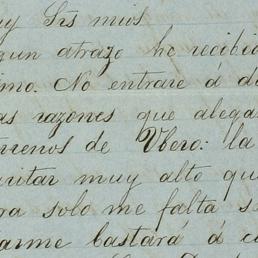 uy Srs mios
gun atrazo he recibid
imo. No entrare á d
as razones que alega
rrenos de Vbero: la
ritar muy alto qu
ra solo me falta s
arme bastará á c